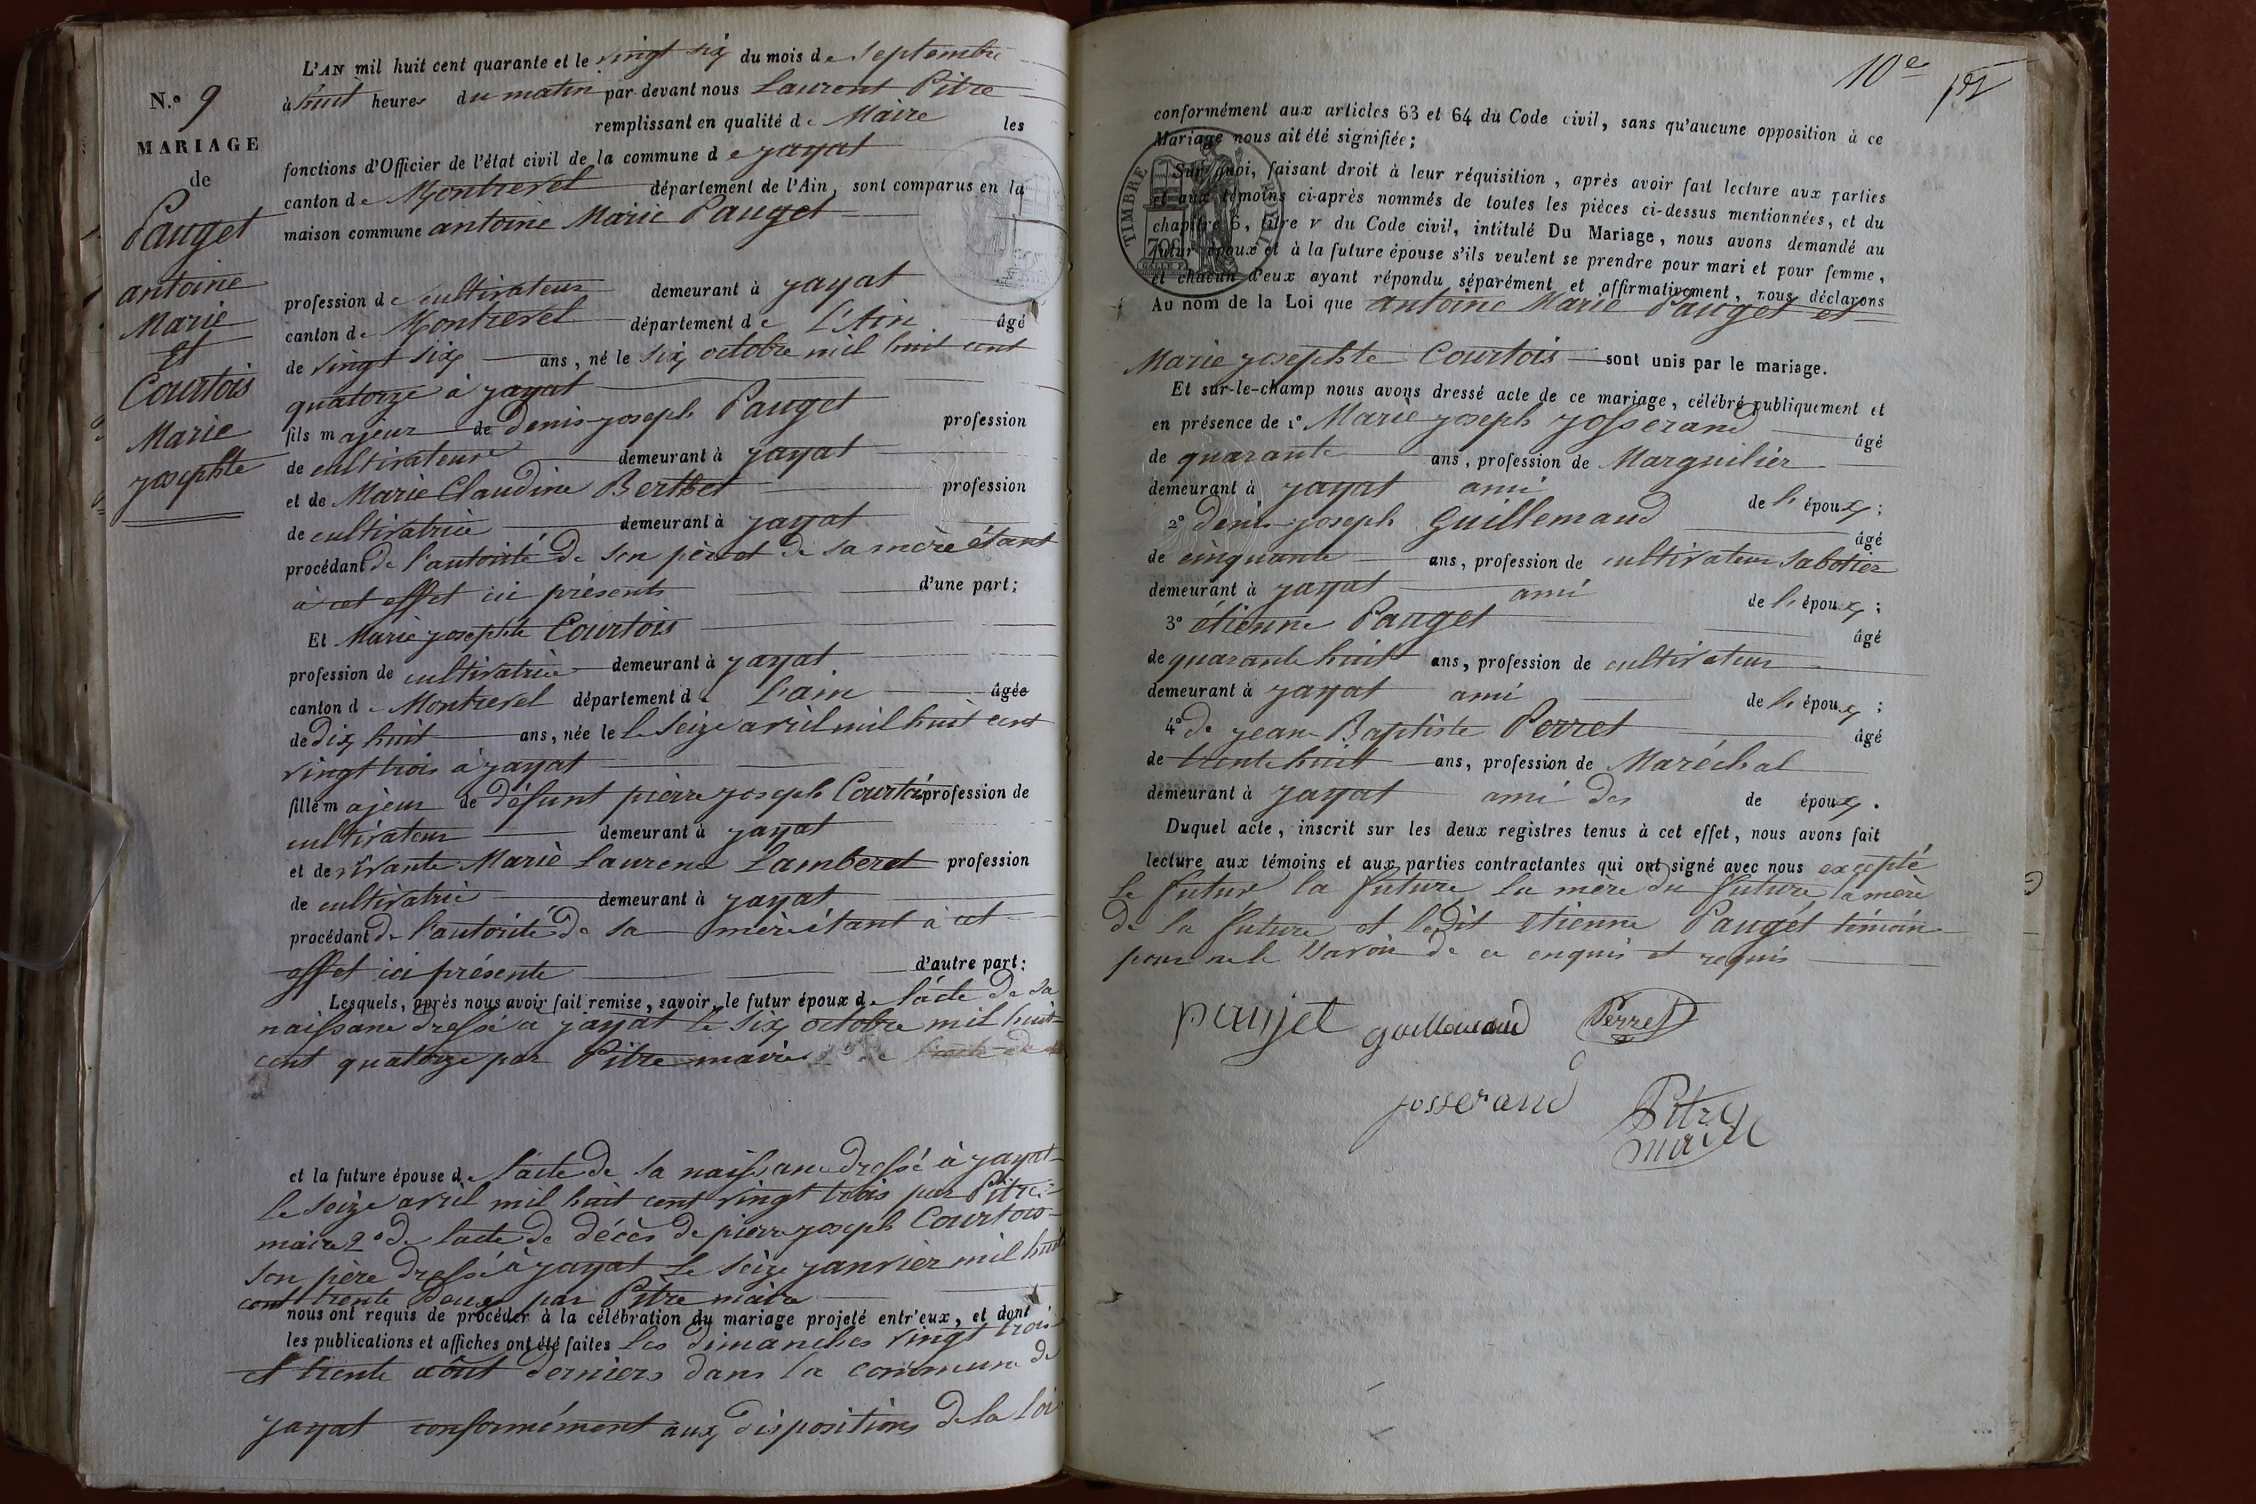 N.o 9
MARIAGE
de
Pauget
antoine
Marie
et
Courtois
Marie
josephte
L'AN mil huit cent quarante et le vingt six du mois de septembre
à huit heures du matin par devant nous Laurent Pitre
remplissant en qualité de Maire les
fonctions d'Officier de l'état civil de la commune de jayat
canton de Montrevel département de l'Ain, sont comparus en la
maison commune antoine Marie Pauget
profession de cultivateur demeurant à jayat
canton de Montrevel département de L'Ain âgé
de vingt six ans, né le six octobre mil huit cent
quatorze à jayat
fils majeur de denis joseph Pauget profession
de cultivateur demeurant à jayat
et de Marie Claudine Berthet profession
de cultivatrice demeurant à jayat
procédant de l'autorité de son père et de sa mère étant
à cet effet ici présents d'une part;
Et Marie josephte Courtois
profession de cultivatrice demeurant à jayat
canton de Montrevel département de Lain âgée
de dix huit ans, née le le seize avril mil huit cent
vingt trois à jayat
fille majeur de défunt pierre joseph Courtois profession de
cultivateur demeurant à jayat
et de vivante Marie Laurence Lamberet profession
de cultivatrice demeurant à jayat
procédant de l'autorité de sa mère étant à cet
effet ici présente d'autre part:
Lesquels, après nous avoir fait remise, savoir, le futur époux de lacte de sa
naissance dressé à jayat le six octobre mil huit
cent quatorze par Pitre maire
et la future épouse de lacte de sa naissance dressé à jayat
le seize avril mil huit cent vingt trois par Pitre
maire 2o de lacte de décès de pierre joseph Courtois
son père dressé à jayat le seize janvier mil huit
cent trente deux par Pitre maire
nous ont requis de procéder à la célébration du mariage projeté entr'eux, et dont
les publications et affiches ont été faites les dimanches vingt trois
et trente août derniers dans la commune de
jayat conformément aux dispositions de la loi
10e
conformément aux articles 63 et 64 du Code civil, sans qu'aucune opposition à ce
Mariage nous ait été signifiée;
Sur quoi, faisant droit à leur réquisition, après avoir fait lecture aux parties
et aux témoins ci-après nommés de toutes les pièces ci-dessus mentionnées, et du
chapitre 6, titre v du Code civil, intitulé Du Mariage, nous avons demandé au
futur époux et à la future épouse s'ils veulent se prendre pour mari et pour femme,
et chacun d'eux ayant répondu séparément et affirmativement, nous déclarons
Au nom de la Loi que antoine Marie Pauget et
Marie josephte Courtois sont unis par le mariage.
Et sur-le-champ nous avons dressé acte de ce mariage, célébré publiquement et
en présence de 1o Marie joseph josserand âgé
de quarante ans, profession de Marguilier
demeurant à jayat ami de l' époux;
2o denis joseph Guillemaud âgé
de cinquante ans, profession de cultivateur sabotier
demeurant à jayat ami de l' époux;
3o étienne Pauget âgé
de quarante huit ans, profession de cultivateur
demeurant à jayat ami de l' époux;
4o de jean Baptiste Perret âgé
de trente huit ans, profession de Maréchal
demeurant à jayat ami des de époux.
Duquel acte, inscrit sur les deux registres tenus à cet effet, nous avons fait
lecture aux témoins et aux parties contractantes qui ont signé avec nous excepté
le futur la future, la mère du future, la mère
de la future et ledit etienne Pauget témoin
pour ne le savoir de ce enquis et requis
paujet guillemaud Perret
josserand Pitre
maire
TIMBRE ROYAL